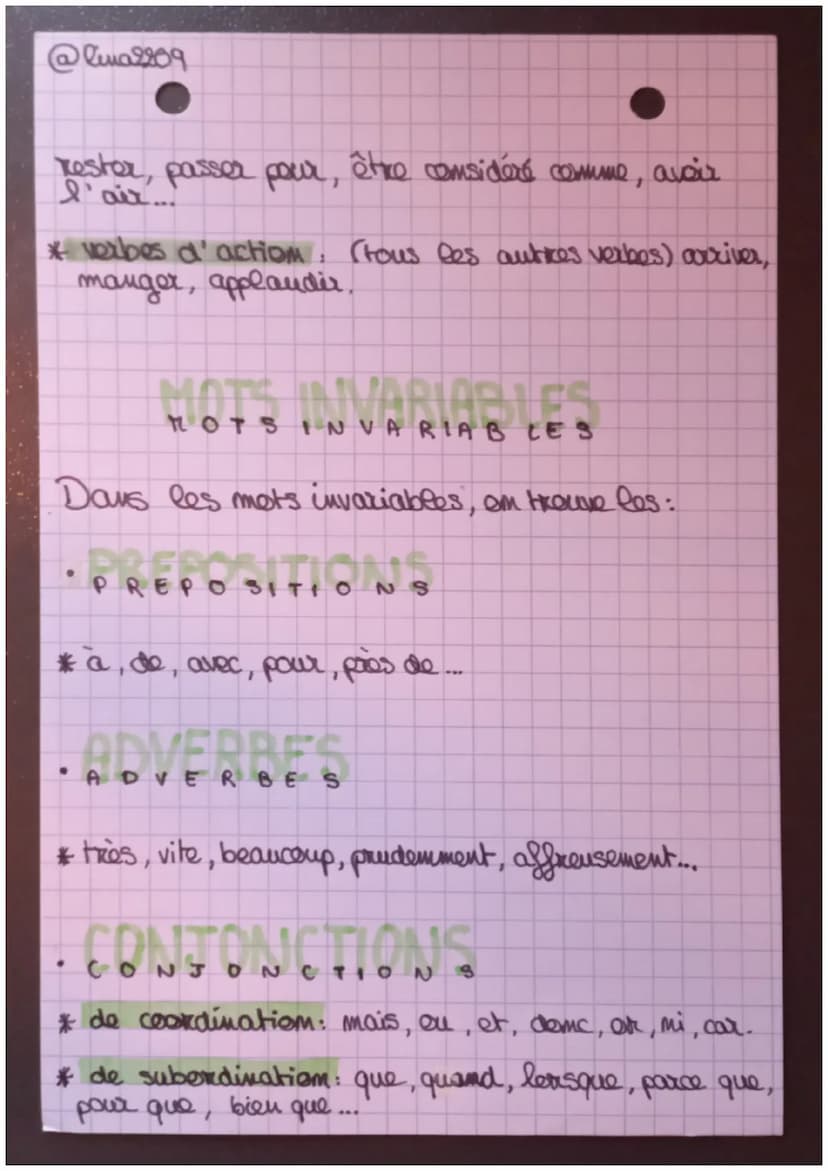 @lina2209
rester, passer pour, être considéré comme, avoir
l'air...
* verbes d'action : (tous les autres verbes) arriver,
manger, applaudir.
MOTS INVARIABLES
MOTS INVARIABLES
Dans les mots invariables, on trouve les :
• PREPOSITIONS
PREPOSITIONS
* à, de, avec, pour, près de...
• ADVERBES
ADVERBES
* très, vite, beaucoup, prudemment, affreusement...
• CONJONCTIONS
CONJONCTIONS
* de coordination : mais, ou, et, donc, or, ni, car.
* de subordination : que, quand, lorsque, parce que,
pour que, bien que...